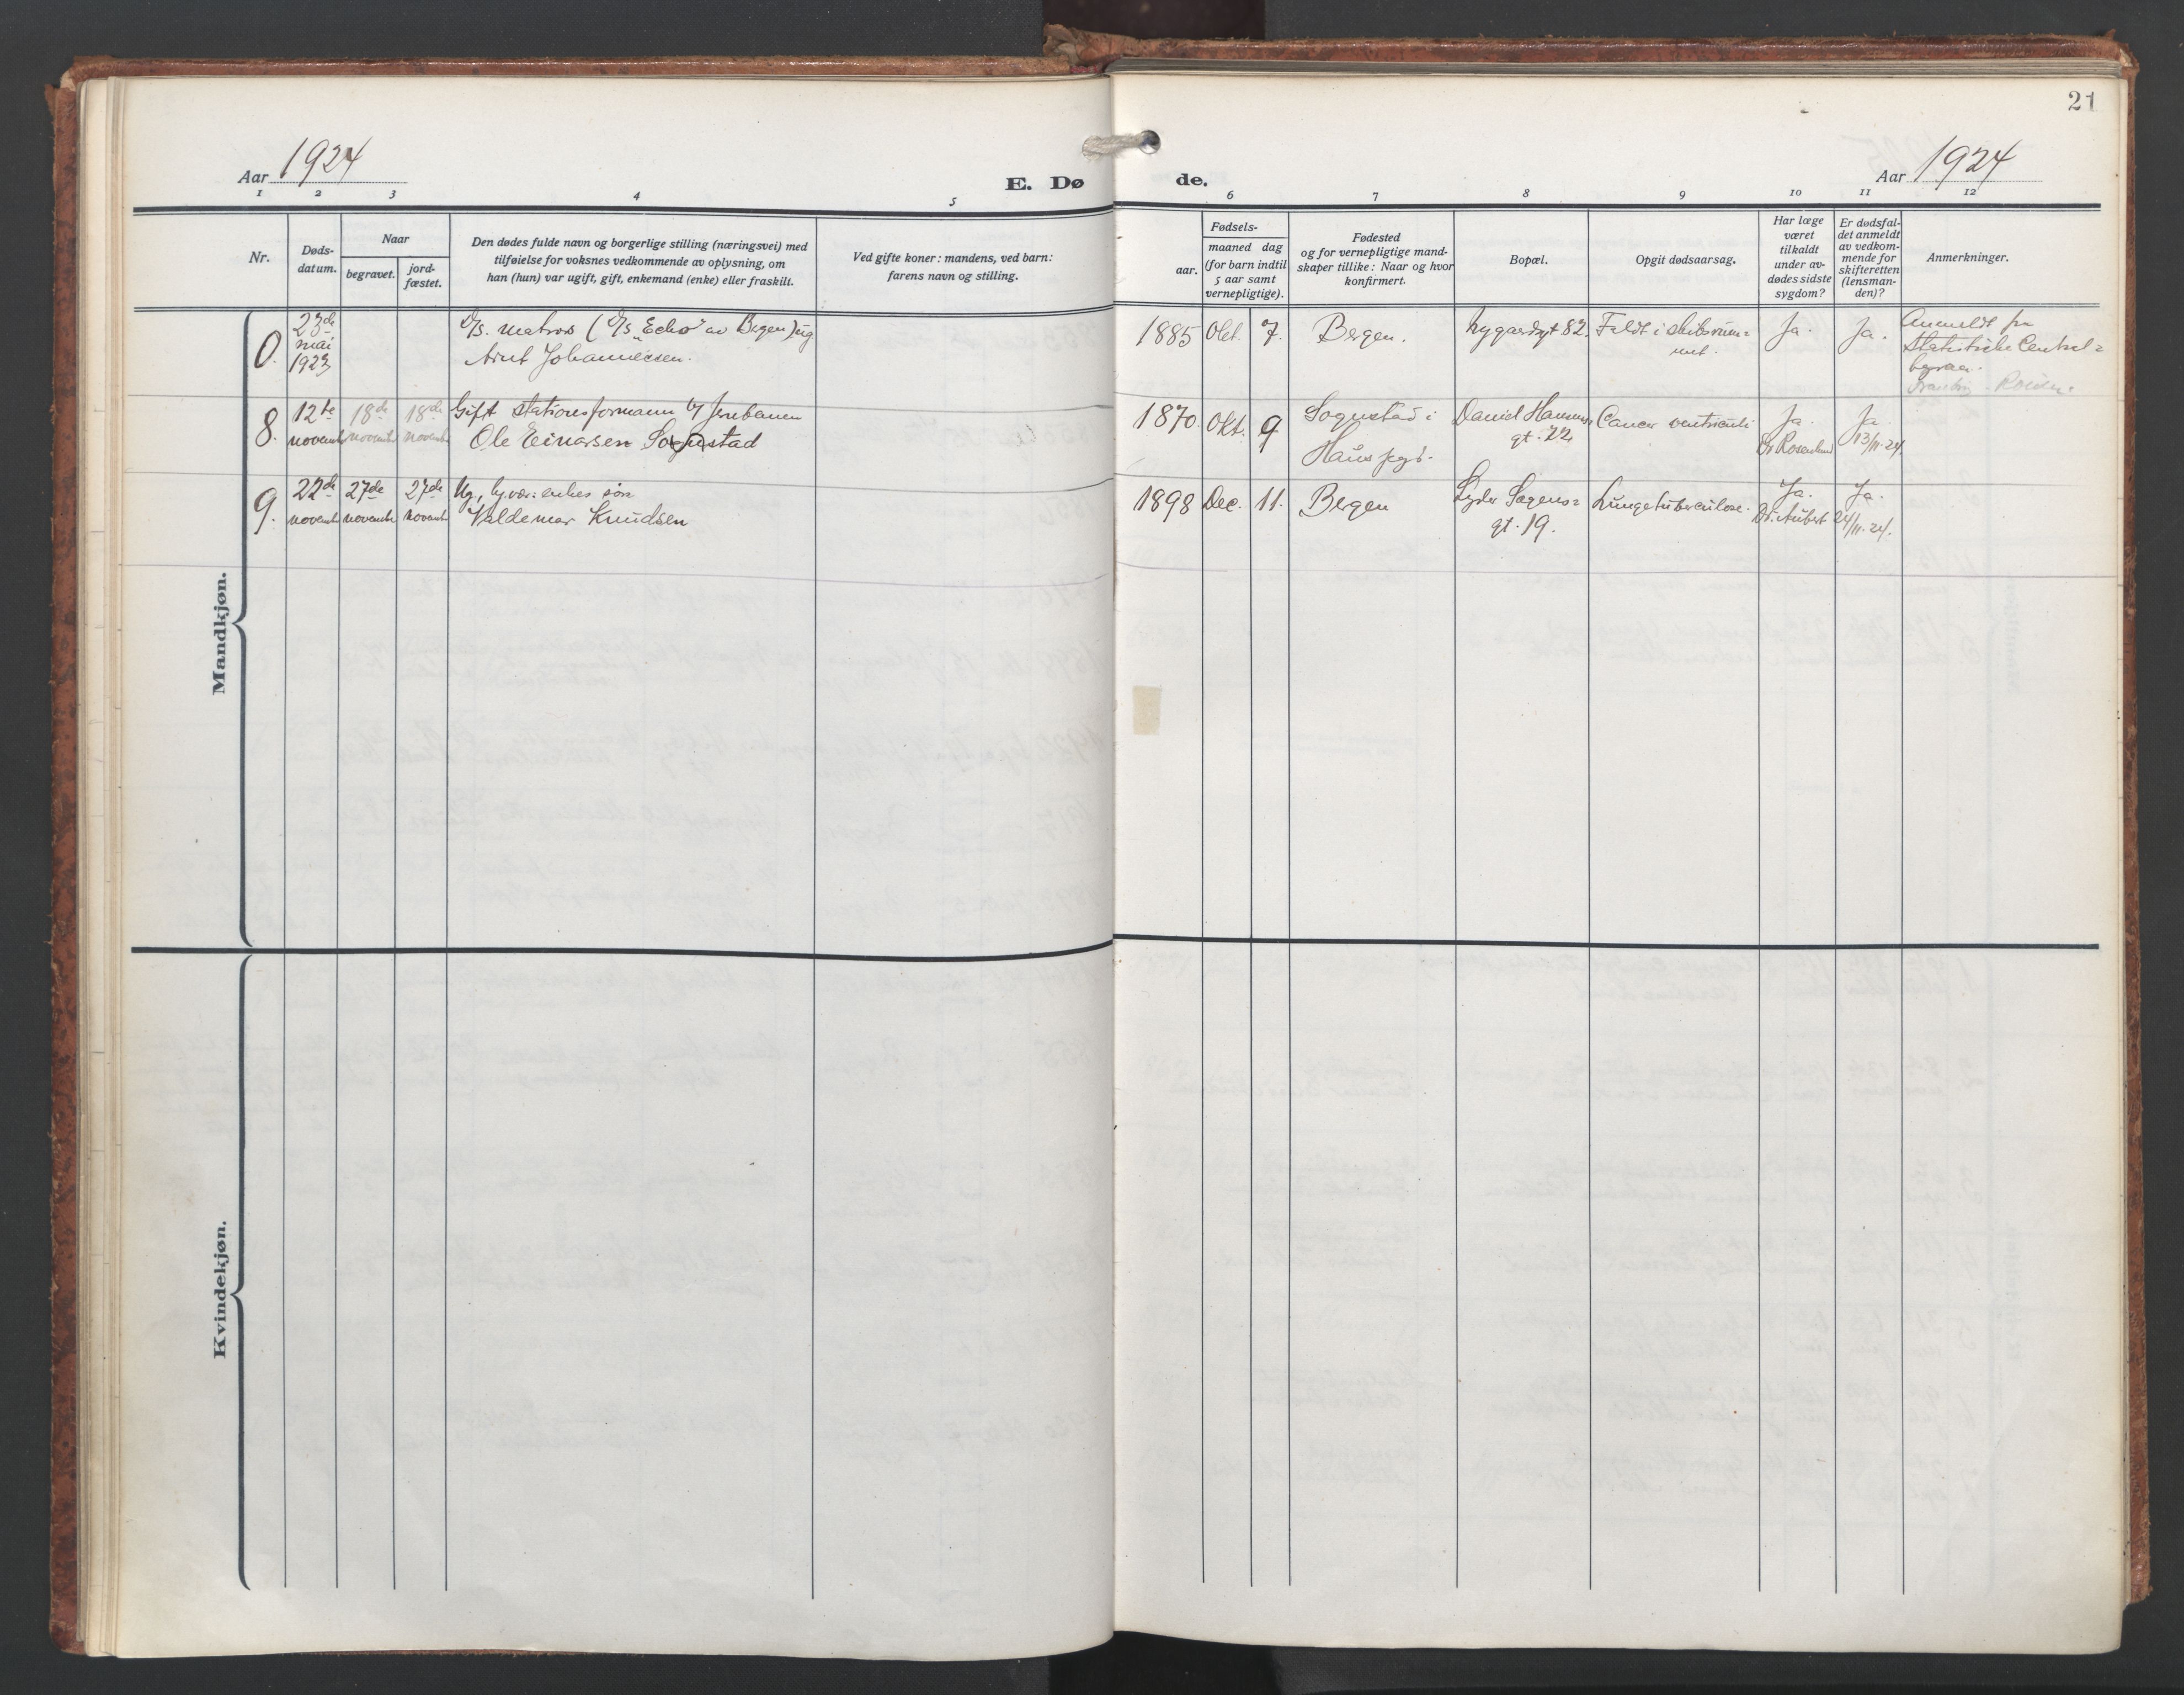 21
Aar 1924
E. Dø
de.
Aar 1924
1 2 3 4 5 6 7 8 9 10 11 12
Nr.
Døds-
datum.
Naar
begravet.
jord-
fæstet.
Den dødes fulde navn og borgerlige stilling (næringsvei) med
tilføielse for voksnes vedkommende av oplysning, om
han (hun) var ugift, gift, enkemand (enke) eller fraskilt.
Ved gifte koner: mandens, ved barn:
farens navn og stilling.
Fødsels-
aar.
maaned dag
(for barn indtil
5 aar samt
vernepligtige).
Fødested
og for vernepligtige mand-
skaper tillike: Naar og hvor
konfirmert.
Bopæl.
Opgit dødsaarsag.
Har læge
været
tilkaldt
under av-
dødes sidste
sygdom?
Er dødsfal-
det anmeldt
av vedkom-
mende for
skifteretten
(lensman-
den)?
Anmerkninger.
Mandkjøn.
0.
23de
mai
1923
D/s. matros (D/s "Echo" av Bergen) ug
Arnt Johannessen.
1885
Okt.
7.
Bergen.
Nygaardsgt 82.
Faldt i skibsrum=
met.
Ja.
Ja.
Anmeldt fra
Statistiske Central=
byraa.
8.
12te
novemb
18de
novemb
18de
novemb
Gift stationsformann v/ Jernbanen
Ole Einarsen Sognstad
1870.
Okt.
9
Sognstad i
Haus pgd.
Daniel Hansens
gt. 22
Cancer ventriculi
Ja.
Dr Rosenlund
Ja.
13/11-24.
9.
22de
novemb
27de
novemb
27de
novemb
Ug, søn
Valdemar Knudsen
1898
Dec.
11.
Bergen
Lyder Sagens=
gt. 19.
Lungetuberculose.
Ja.
Dr. Aubert
Ja.
24/11-24.
Kvindekjøn.